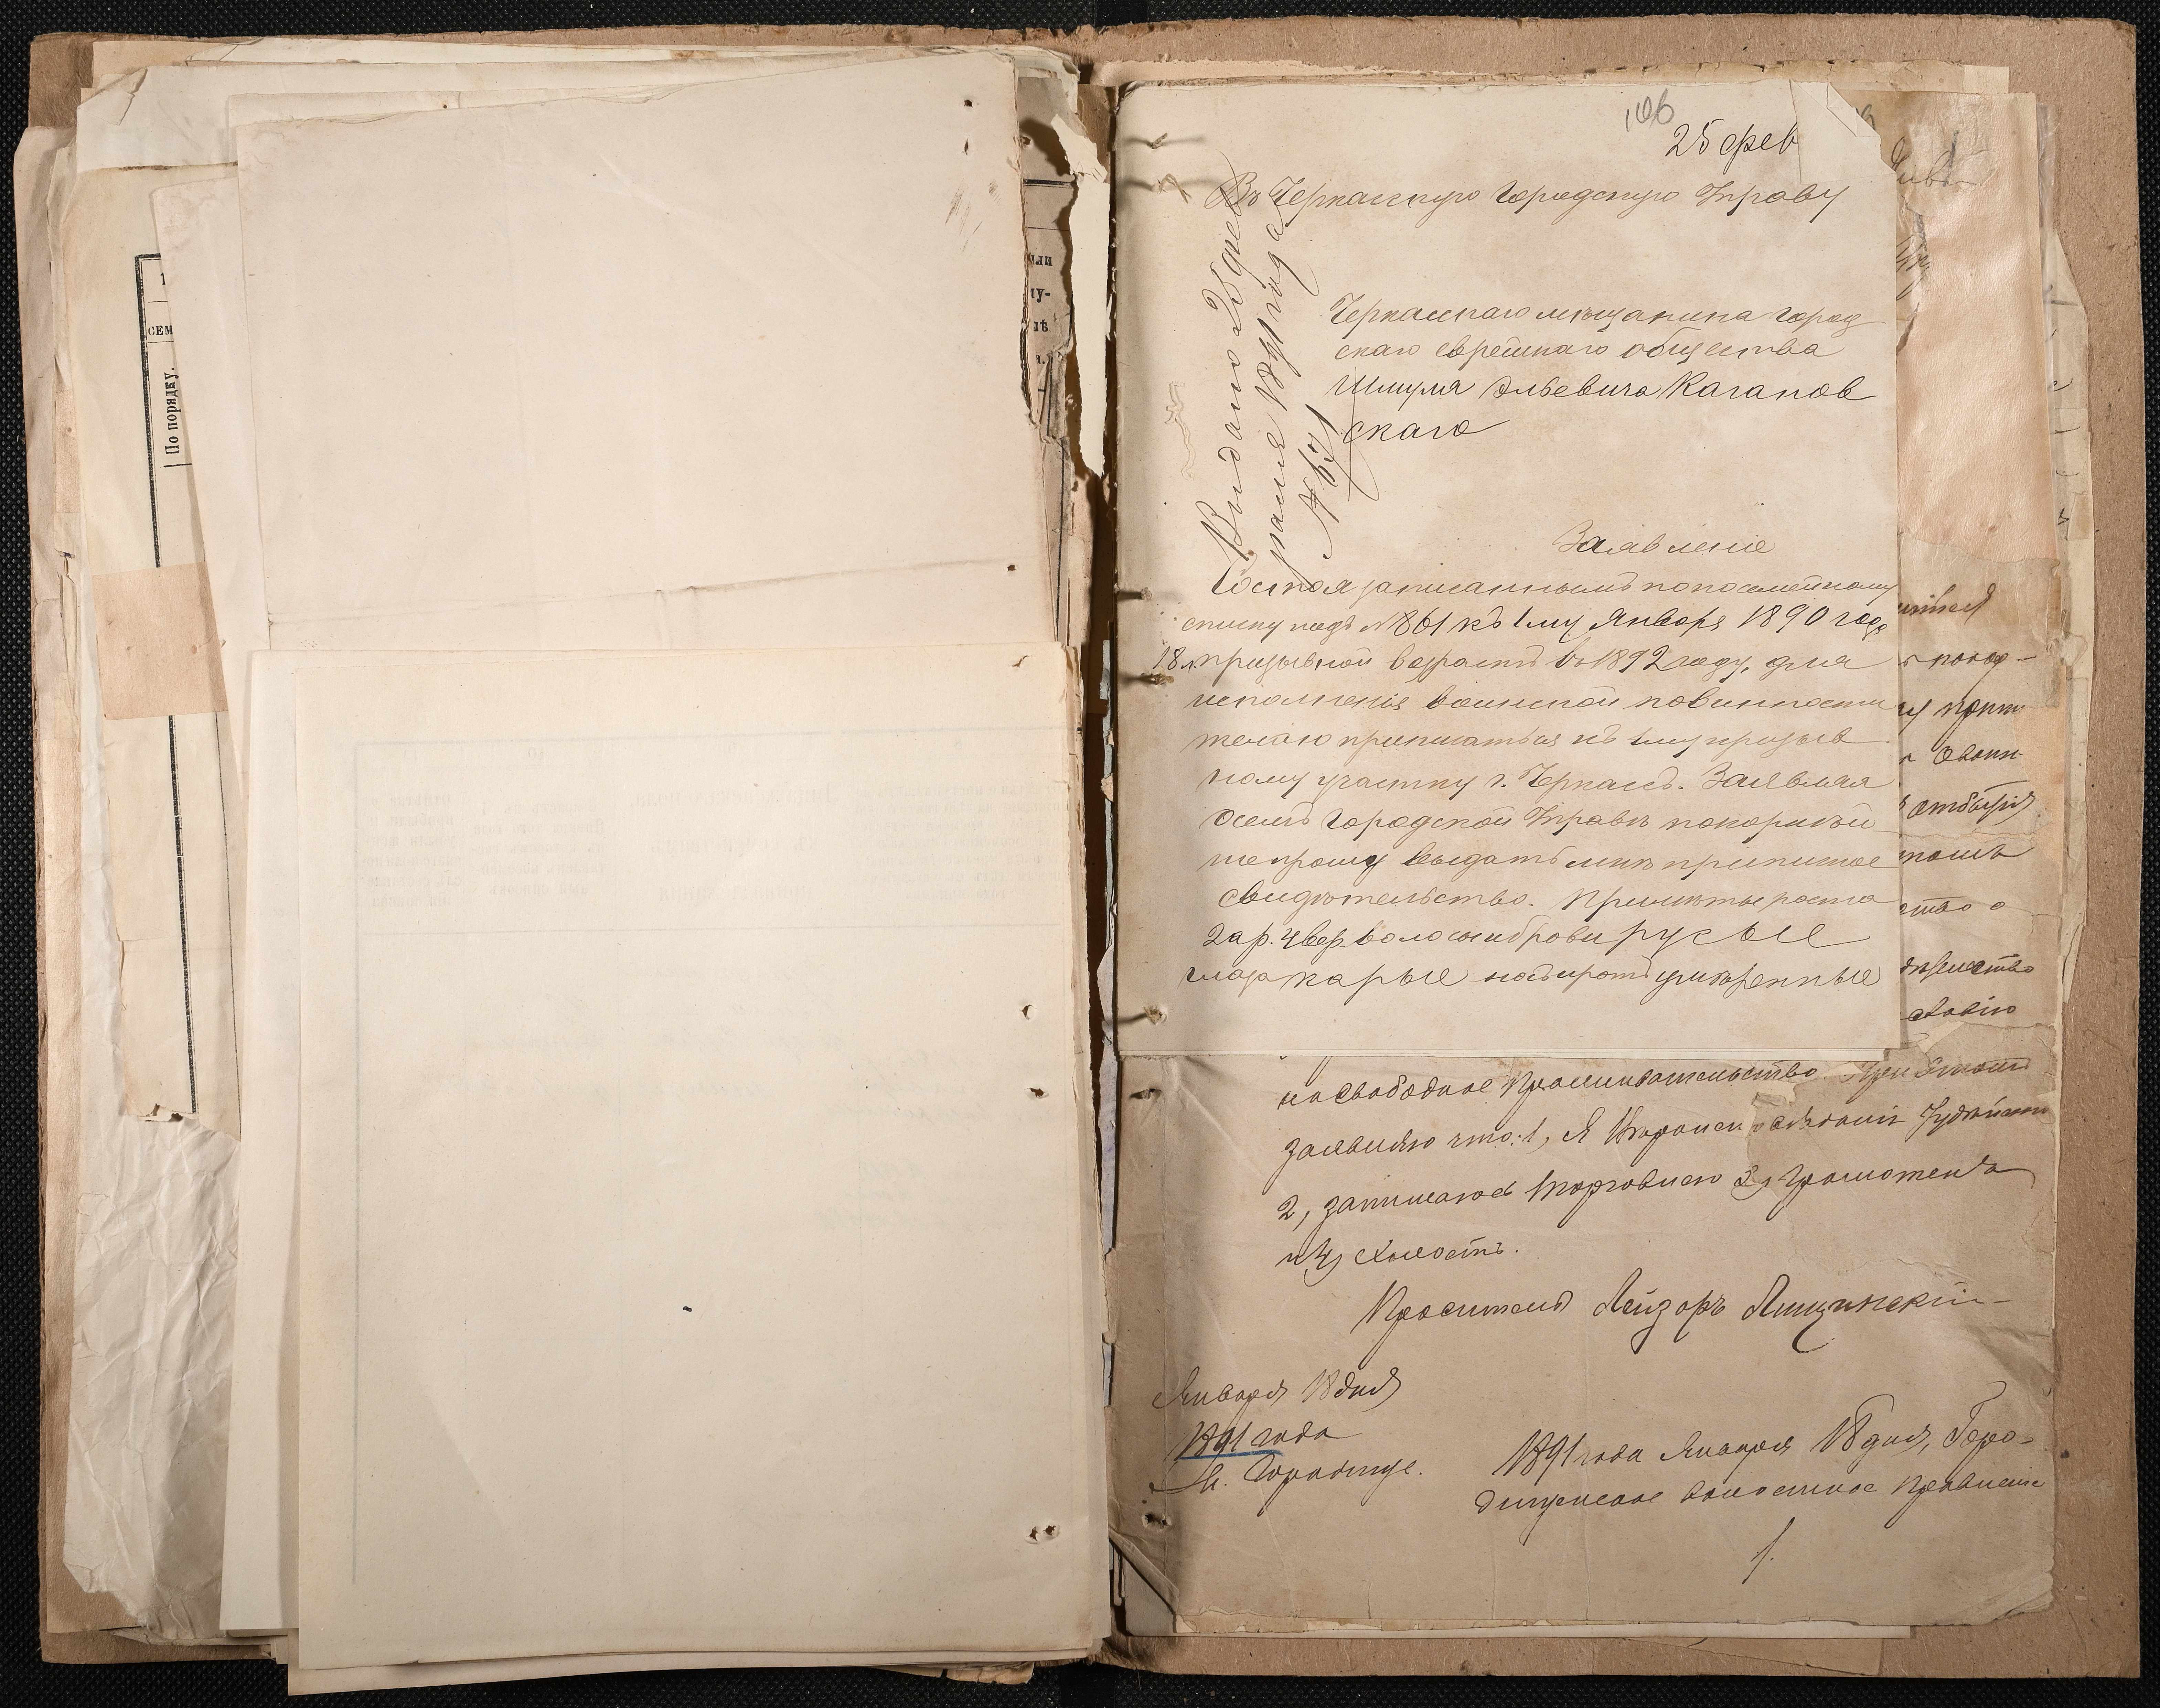 СЕМ
По порядку.
или
ту-
106
25 фев
Въ Черкасскую Городскую Управу
Выдано 25 фев
раля 1891 года
№ 637
Черкасскаго мѣщанина город
скаго еврейскаго общества
Шмуля Эльевича Каганов
скаго
Заявленіе
Состоя записаннымъ по посемейному
списку подъ №861 къ 1му Января 1890 года
18 л. призывной возрастъ въ 1892 году, для
исполненія воинской повинности
желаю приписаться къ 1му призыв
ному участку г. Черкасъ. Заявляя
о семъ Городской Управѣ покорнѣй
ше прошу выдать мнѣ приписное
свидѣтельство. Примѣты роста
2 ар. 4 вер. волосы и брови русые
глаза карые носъ и ротъ умѣренные
отбытія
ство о
на свободное проживательство. При этомъ
заявляю что: 1, Я Вѣроисповѣданія Іудейскаго
2, занимаюсь торговлею 3, грамотенъ
и 4, холостъ.
Проситель Лейзоръ Ящинскій
Января 18 дня
1891 года
М. Городище.
1891 года Января 18 дня, Горо-
дищенское волостное правленіе